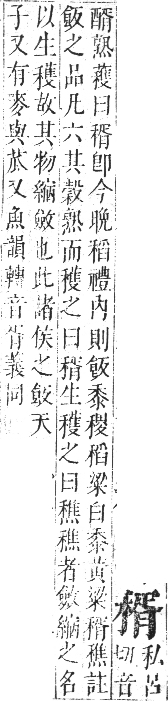 稰
私呂
切音
醑熟穫曰稰卽今晚稻禮內則飯黍稷稻粱白黍黃粱稰穛註
飯之品凡六其穀熟而穫之曰稰生穫之曰穛穛者斂縮之名
以生穫故其物縮斂也此諸侯之飯天
子又有麥與苽又魚韻轉音胥義同